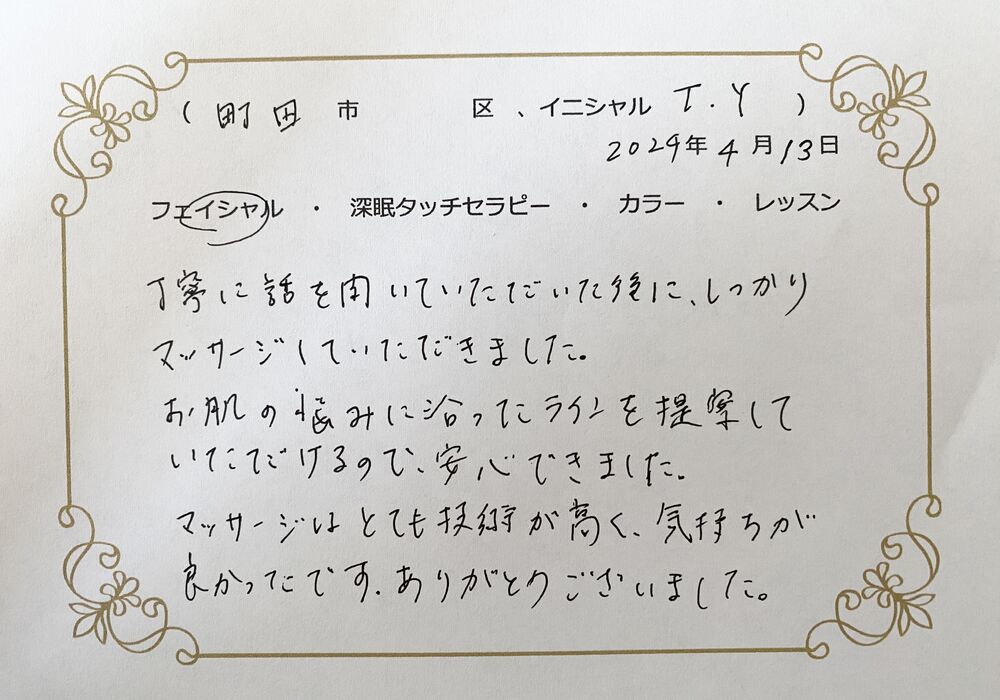 ( 町田 市 区 、イニシャル T.Y )
2024年4月13日
フェイシャル ・ 深眠タッチセラピー ・ カラー ・ レッスン
丁寧に話を聞いていただいた後に、しっかり
マッサージしていただきました。
お肌の悩みに沿ったラインを提案して
いただけるので、安心できました。
マッサージはとても技術が高く、気持ちが
良かったです。ありがとうございました。